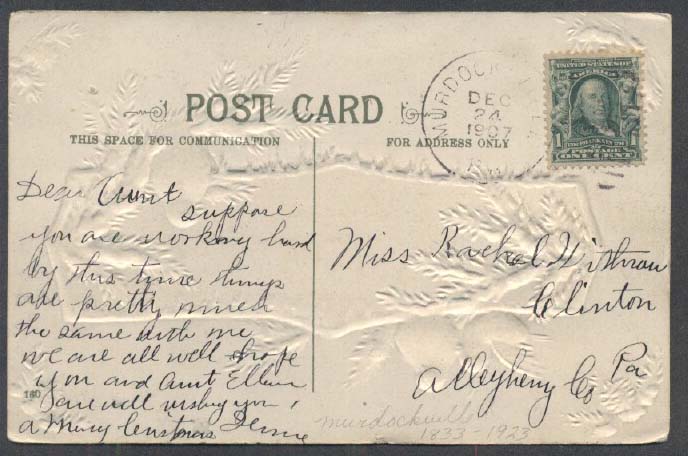 POST CARD
THIS SPACE FOR COMMUNICATION
FOR ADDRESS ONLY
MURDOCK
DEC
24
1907
UNITED STATES OF
AMERICA
1
1
POSTAGE
ONE CENT
Dear Aunt
suppose
you are working hard
by this time things
are pretty much
the same with me
we are all well & hope
you and Aunt Ellen
are well wishing you
a Merry Cristmas
160
Miss Rachel
Clinton
Allegheny Co Pa
Murdockville
1833-1923